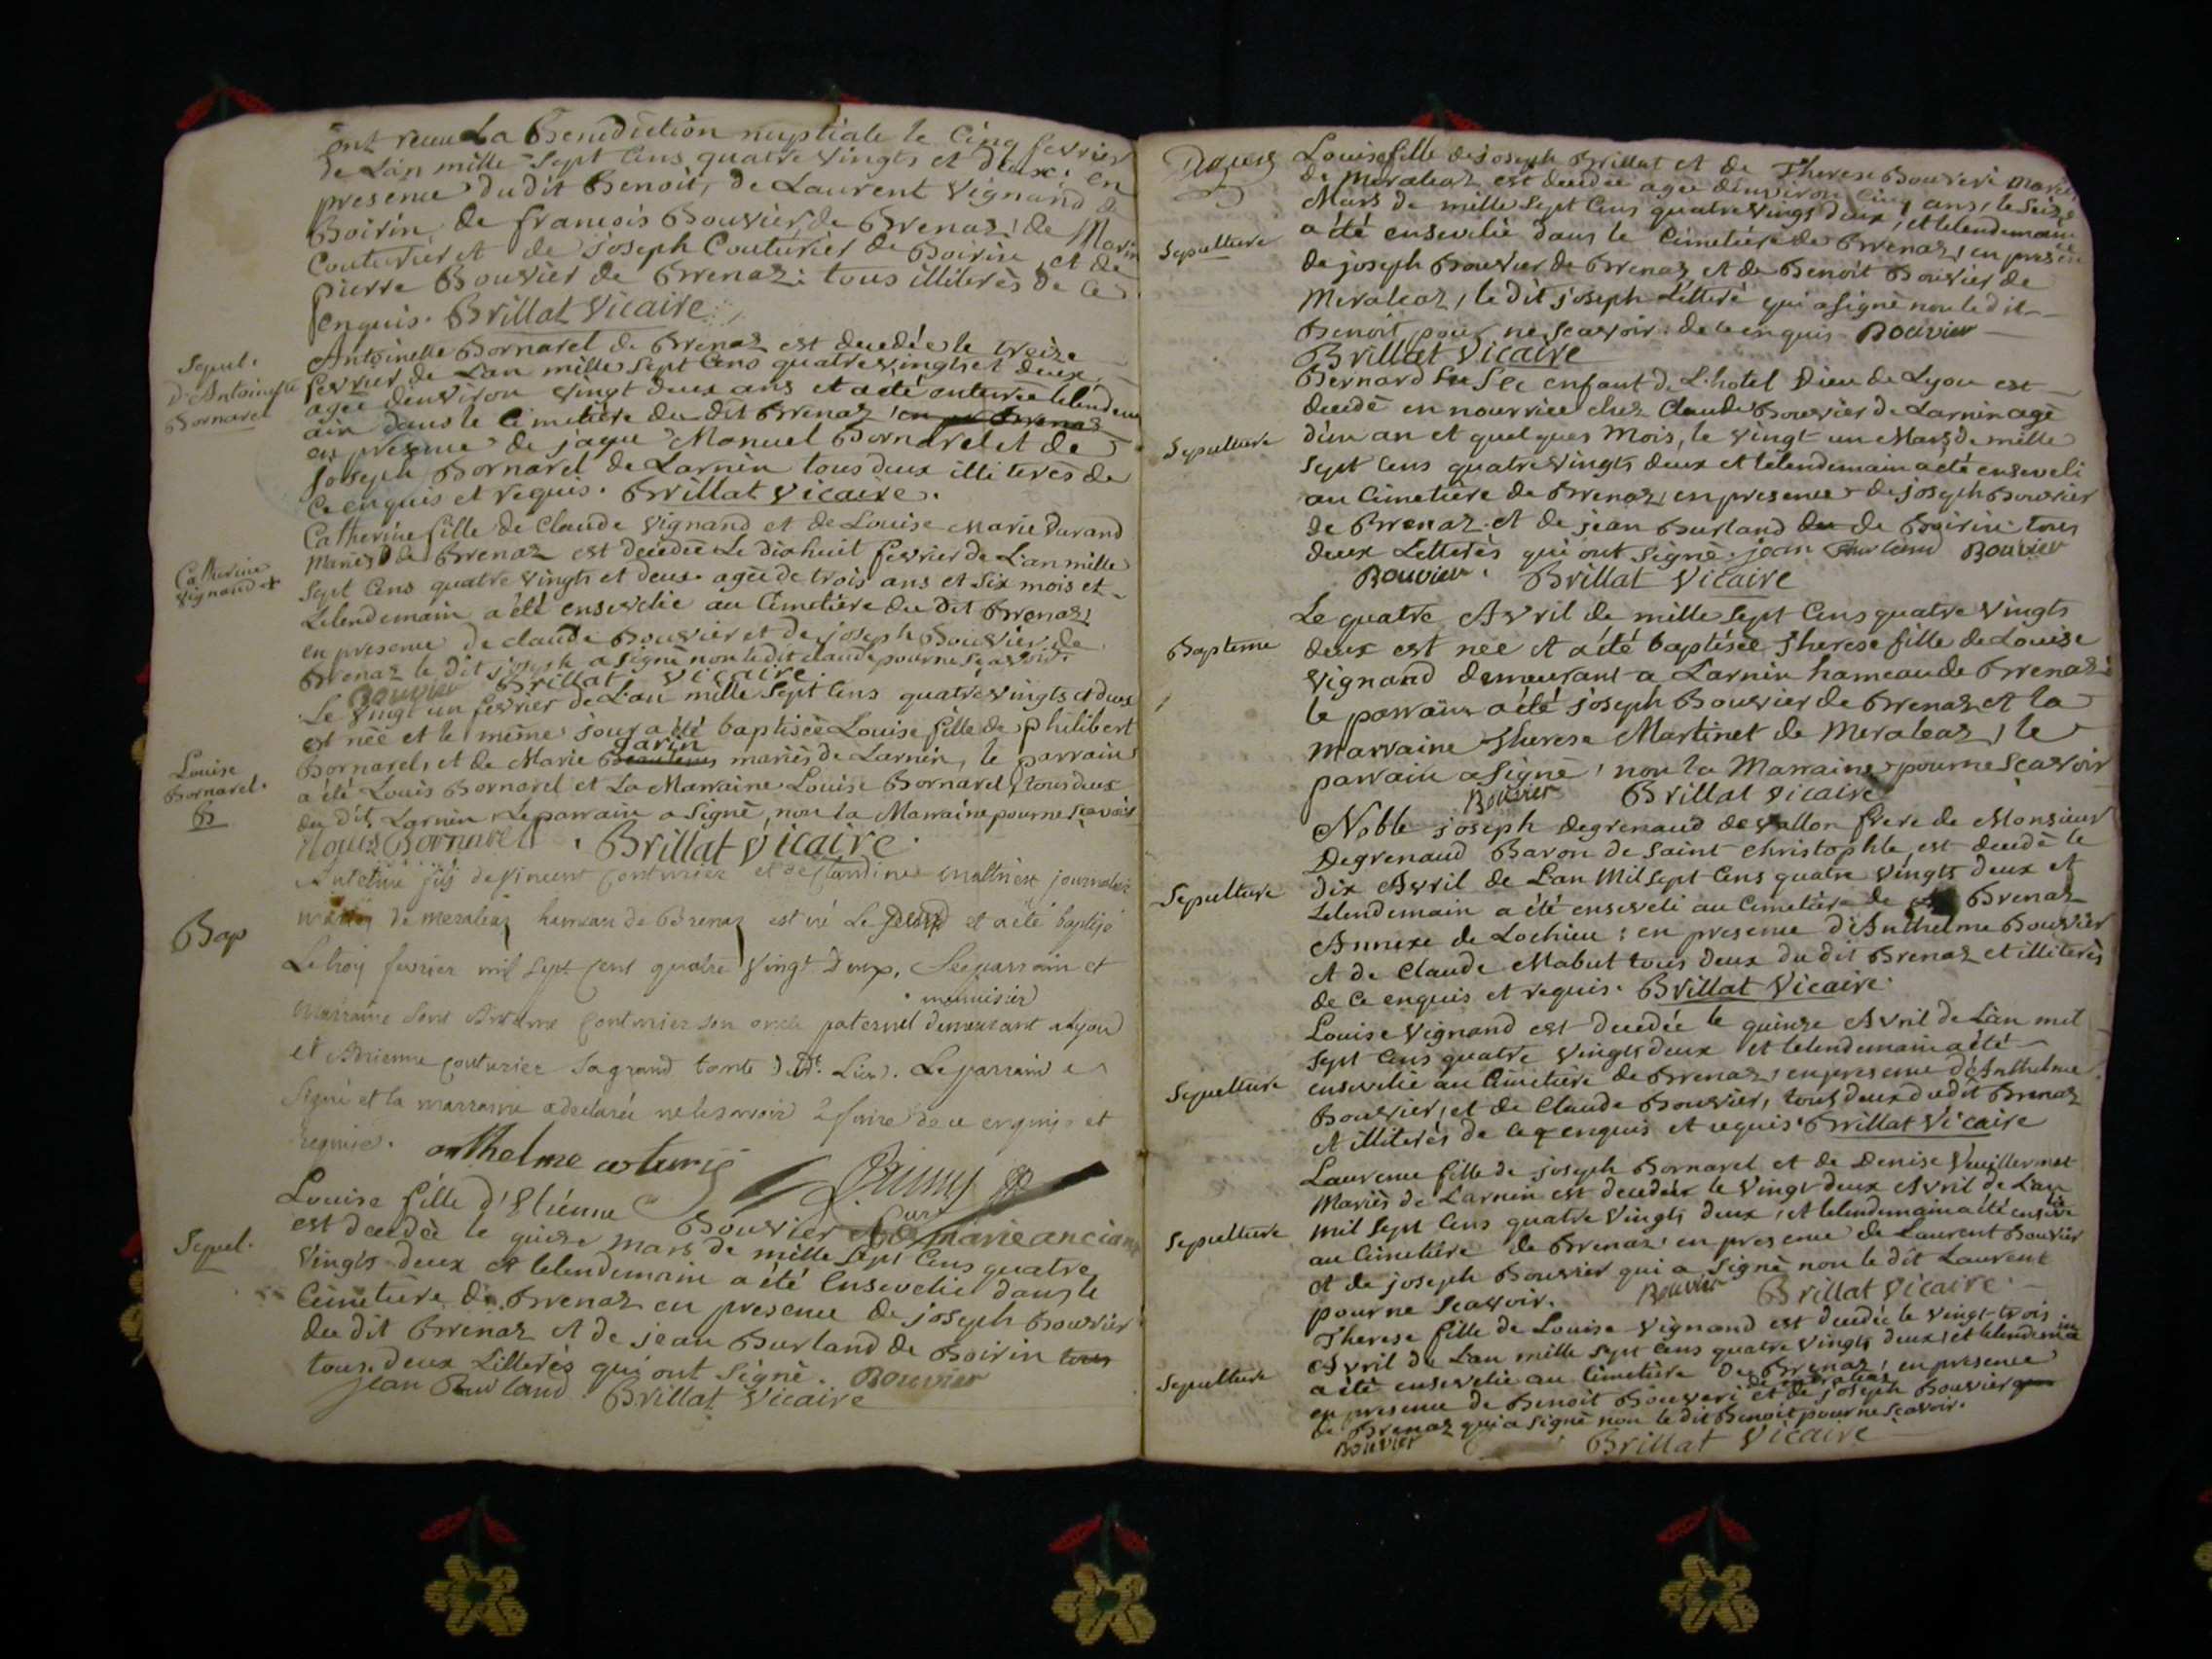 ont recu La Benediction nuptiale le Cinq fevrier
de Lan mille Sept Cens quatre vingts et deux: en
presence du dit Benoit, de Laurent Vignand de
Boirin de francois Bouvier, de Brenaz; de Marin
Couturier et de joseph Couturier de Boirin, et de
pierre Bouvier de Brenaz: tous illiterès de ce
enquis. Brillat Vicaire
Sepul.
d'Antoinette
Bornarel
Antoinette Bornarel de Brenaz est decedée le treize
fevrier de Lan mille Sept Cens quatre vingts et deux
agée denviron vingt deux ans et a été enterrée lelendem
ain dans le Cimetiére du dit Brenaz en Brenaz
en presence de jaque Manuel Bornarel et de
Joseph Bornarel de Larnin tous deux illiteres de
Ce enquis et requis. Brillat vicaire.
Catherine
Vignand +
Catherine fille de Claude Vignand et de Louise Marie Durand
Mariés de Brenaz est decedée Le dixhuit fevrier de L'an mille
Sept Cens quatre vingts et deux agée de trois ans et six mois et
Lelendemain a été ensevelie au Cimetiére du Dit Brenaz,
en presence de claude Bouvier et de joseph Bouvier de
Brenaz le dit joseph a signè non ledit claude pour ne sçavoir.
Bouvier Brillat Vicaire.
Louise
Bornarel.
B
Le vingt un fevrier de L'an mille Sept Cens quatre vingts et deux
est néé et le méme jour a été baptiséè Louise fille de philibert
Bornarel, et de Marie garin mariés de Larnin, le parrain
a été Louis Bornarel et La Marraine Louise Bornarel tous deux
du dit Larnin, Le parrain a Signè, non la Marraine pour ne sçavoir
Louis Bornarel . Brillat vicaire.
Bap
Antelme fils de vincent Conturier et de Claudine journalier
de meraleaz hameau de Brenaz est né Le Second et a été baptisé
Le troy fevrier mil sept cent quatre vingt deux. Le parrain et
marraine sont Antelme Conturier son oncle paternel menuisier demeurant a Lyon
et Adrienne Couturier sa grand tante du dt. Lieu. Le parrain a
Signé et la marraine a declarée ne le sçavoir faire de ce enquis et
requise. anthelme couturie
Curé
Sepul.
Louise fille d'Etienne Bouvier et de marie anciane
est decedée le quize mars de mille Sept Cens quatre
Vingts deux et lelendemain a été Ensevelie dans le
Cimetiére de Brenaz en presence de joseph Bouvier
du dit Brenaz et de jean Burland de Boirin tous
tous deux Litterés qui ont Signè. Bouvier
jean Burland Brillat Vicaire
Sepulture
Louise fille de joseph Brillat et de Therese Bouveri mariés
de Meraleaz est decedée agee denviron Cinq ans, le Seize
Mars de mille Sept Cens quatre vingt deux, et lelendemain
a été ensevelie dans le Cimetiére de Brenaz, en presence
de joseph Bouvier de Brenaz et de Benoit Bouvier de
Meraleaz, le dit joseph Litteré qui a signè non le dit
Benoit pour ne Scavoir. de ce enquis Bouvier
Brillat Vicaire
Sepulture
Bernard enfant de L'hotel Dieu de Lyon est
decedè en nourrice chez Claude Bouvier de Larnin agè
d'un an et quelques Mois, le vingt un Mars de mille
Sept Cens quatre vingts deux et lelendemain a été enseveli
au Cimetiére de Brenaz, en presence de joseph Bouvier
de Brenaz. et de jean Burland du de Boirin tous
deux Litterés qui ont Signè. jean Burland Bouvier
Bouvier. Brillat Vicaire
Bapteme
Le quatre Avril de mille Sept Cens quatre Vingts
deux est nee et a été baptisée Therese fille de Louise
Vignand demeurant a Larnin hameau de Brenaz:
le parrain a été joseph Bouvier de Brenaz et la
marraine Therese Martinet de Meraleaz, le
parrain a signè, non la Marraine pour ne Scavoir
Bouvier Brillat vicaire
Sepulture
Noble joseph Degrenaud de vallon frere de Monsieur
Degrenaud Baron de saint christophle est decedè le
dix Avril de L'an Mil Sept Cens quatre vingts deux et
Lelendemain a été enseveli au Cimetiére de Brenaz
Annexe de Lochieu: en presence d'Anthelme Bouvier
et de Claude Mabut tous deux du dit Brenaz et illiterés
de Ce enquis et requis. Brillat Vicaire
Sepulture
Louise Vignand est decedée le quinze Avril de L'an mil
Sept Cens quatre vingts deux et lelendemain a été
ensevelie au Cimetiére de Brenaz, en presence d'Anthelme
Bouvier, et de Claude Bouvier, tous deux du dit Brenaz
et illiterés de ce enquis et requis. Brillat Vicaire
Sepulture
Laurence fille de joseph Bornarel et de Denise Vuillermet
Mariés de Larnin est decedée le Vingt deux Avril de Lan
mil Sept Cens quatre Vingts deux, et lelendemain a été ensevelie
au Cimetiére de Brenaz en presence de Laurent Bouvier
et de joseph Bouvier qui a Signè non le dit Laurent
pour ne Scavoir. Bouvier Brillat Vicaire.
Sepulture
Therese fille de Louise Vignand est decedée le vingt trois
Avril de Lan mille Sept Cens quatre vingts deux, et lelendemain
a été ensevelie au Cimetiére De Brenaz, en presence
en presence de Benoit Bouveri de meraleaz et de joseph Bouvier
de Brenaz qui a signè non le dit Benoit pour ne sçavoir.
Bouvier Brillat Vicaire